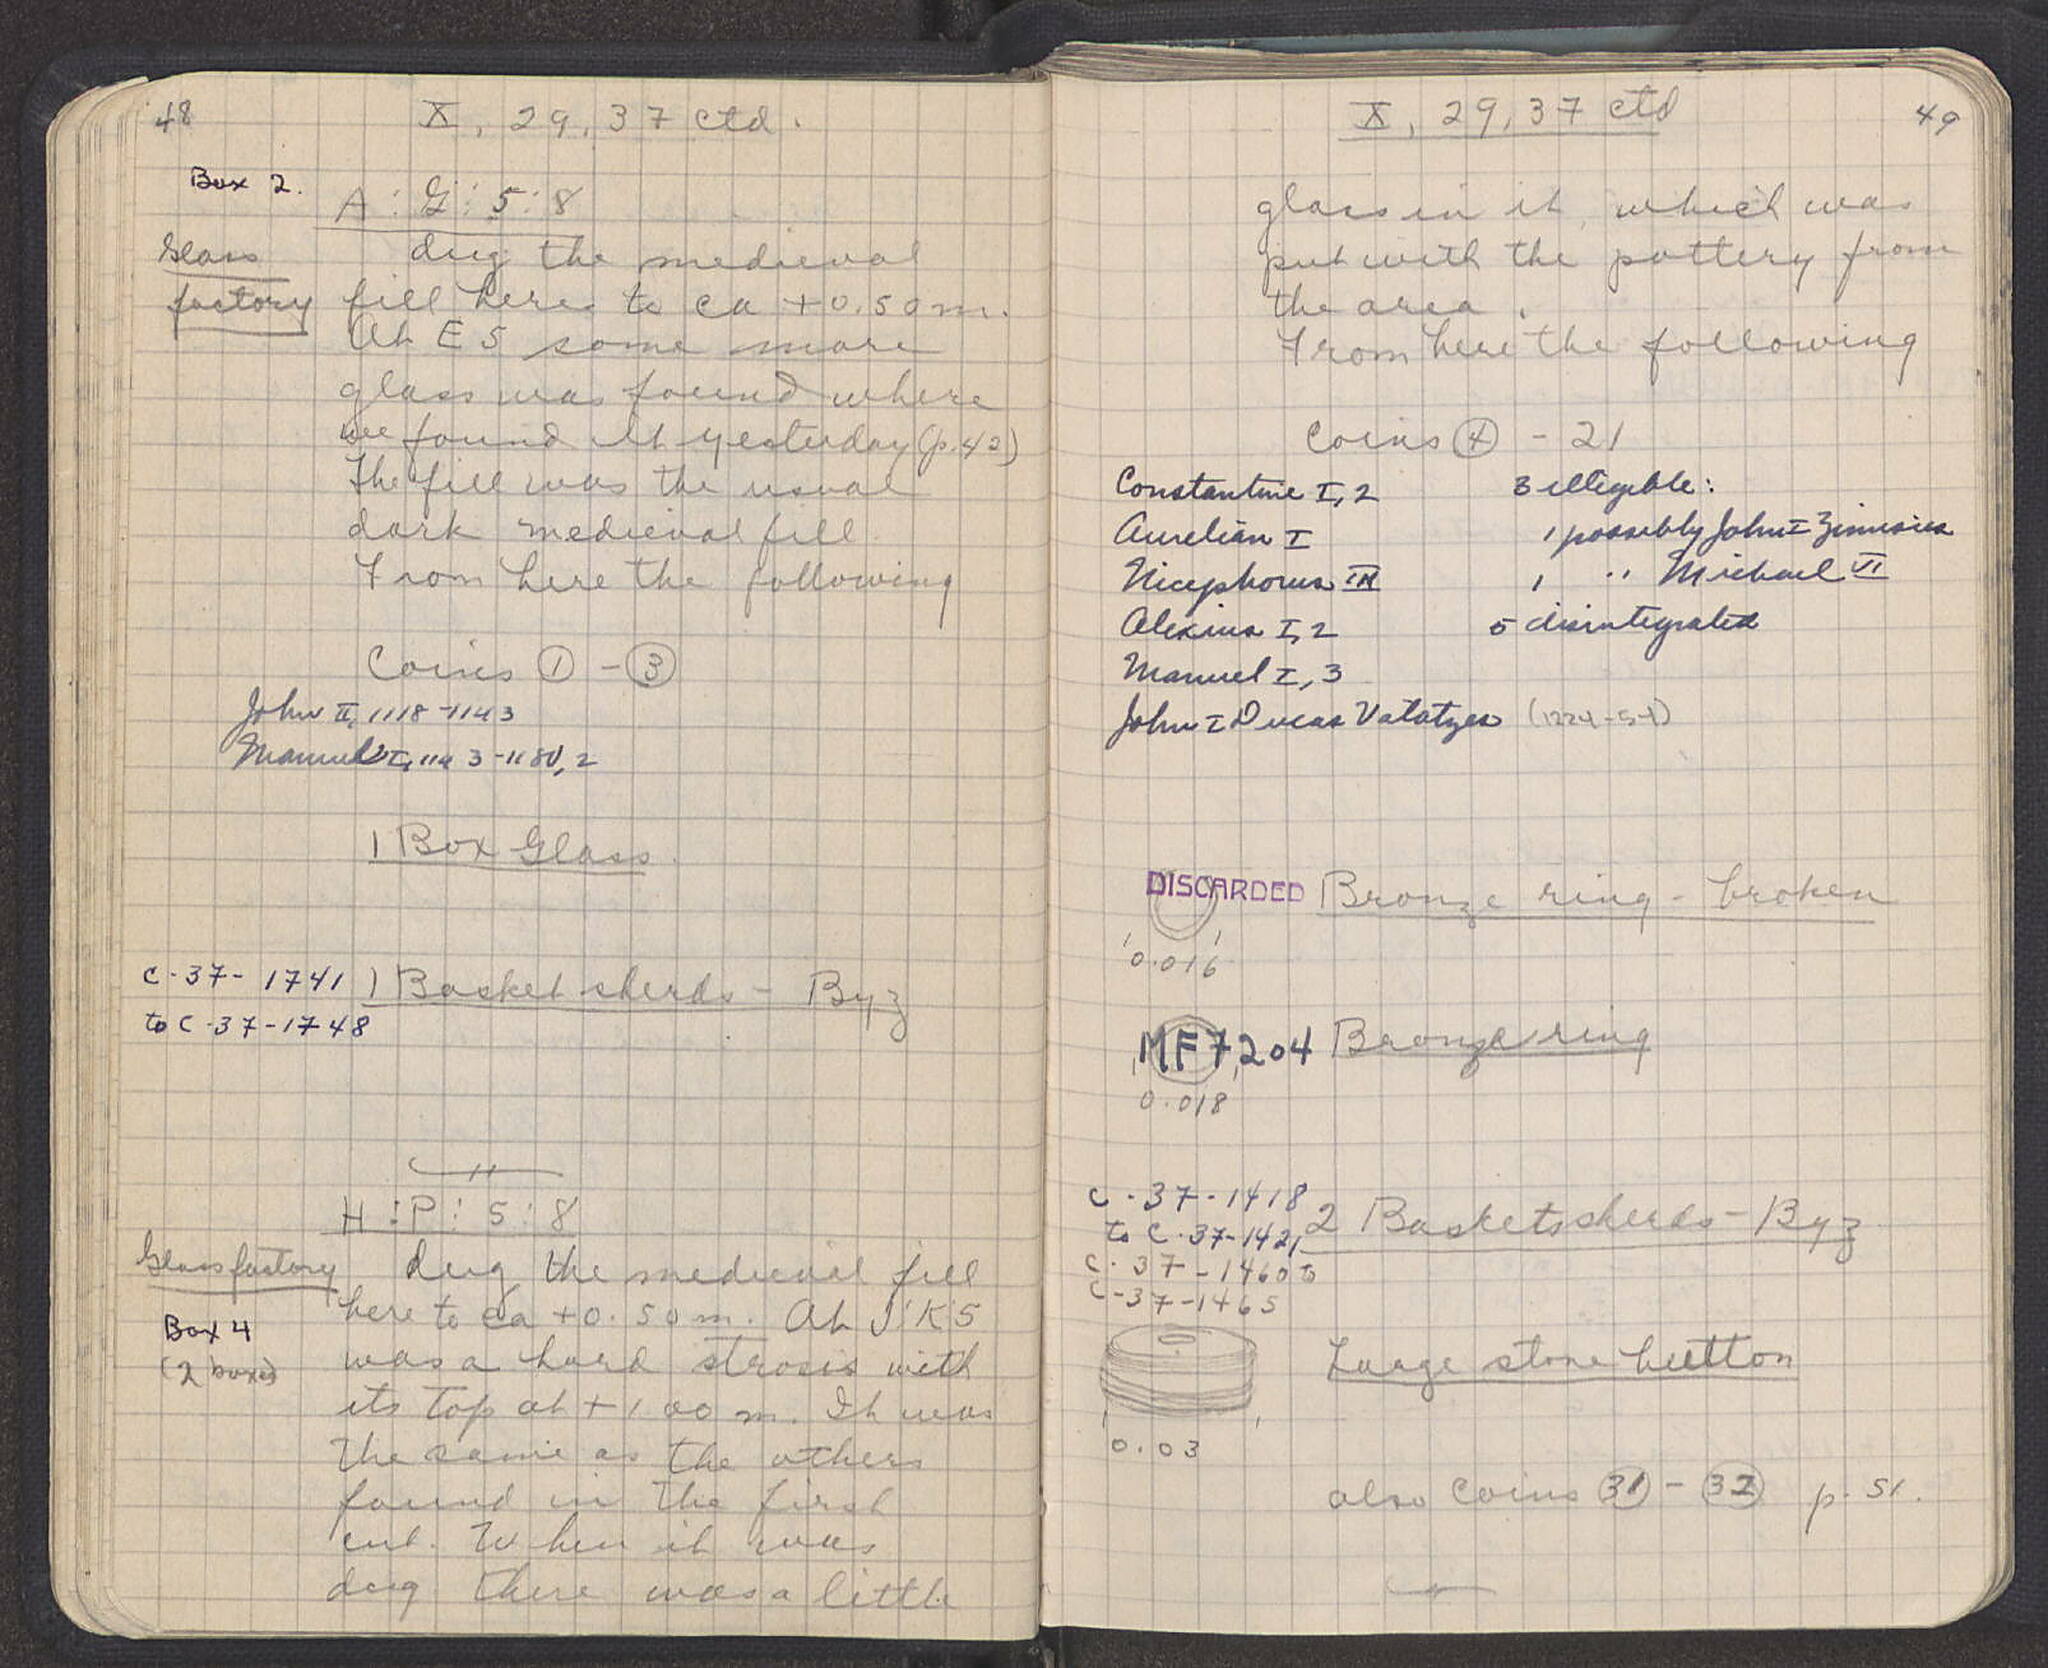 48
X, 29, 37 ctd.
Box 2.
A : G : 5 : 8
Glass
factory
dug the medieval
fill here to ca +0.50m.
At E5 some more
glass was found where
we found it yesterday (p.42)
The fill was the usual
dark medieval fill
From here the following
Coins 1 - 3
John II, 1118-1143
Manuel I, 1143-1180, 2
1 Box Glass.
C-37-1741
to C-37-1748
1 Basket sherds - Byz
H : P : 5 : 8
Glass factory
Box 4
(2 boxes)
dug the medieval fill
here to ca +0.50m. At J K 5
was a hard strosis with
its top at +1.00 m. It was
the same as the others
found in the first
cut. When it was
dug there was a little
X, 29, 37 ctd
49
glass in it, which was
put with the pottery from
the area.
From here the following
Coins 4 - 21
Constantine I, 2
Aurelian I
Nicephorus III
Alexius I, 2
Manuel I, 3
John I Ducas Vatatzes (1224-54)
3 illegible:
1 possibly John I Zimisces
1 " Michael VI
5 disintegrated
DISCARDED Bronze ring - broken
0.016
MF7,204 Bronze ring
0.018
C-37-1418
to C-37-1421
C-37-1460 to
C-37-1465
2 Baskets sherds - Byz
Large stone button
0.03
also coins 31 - 32 p. 51.